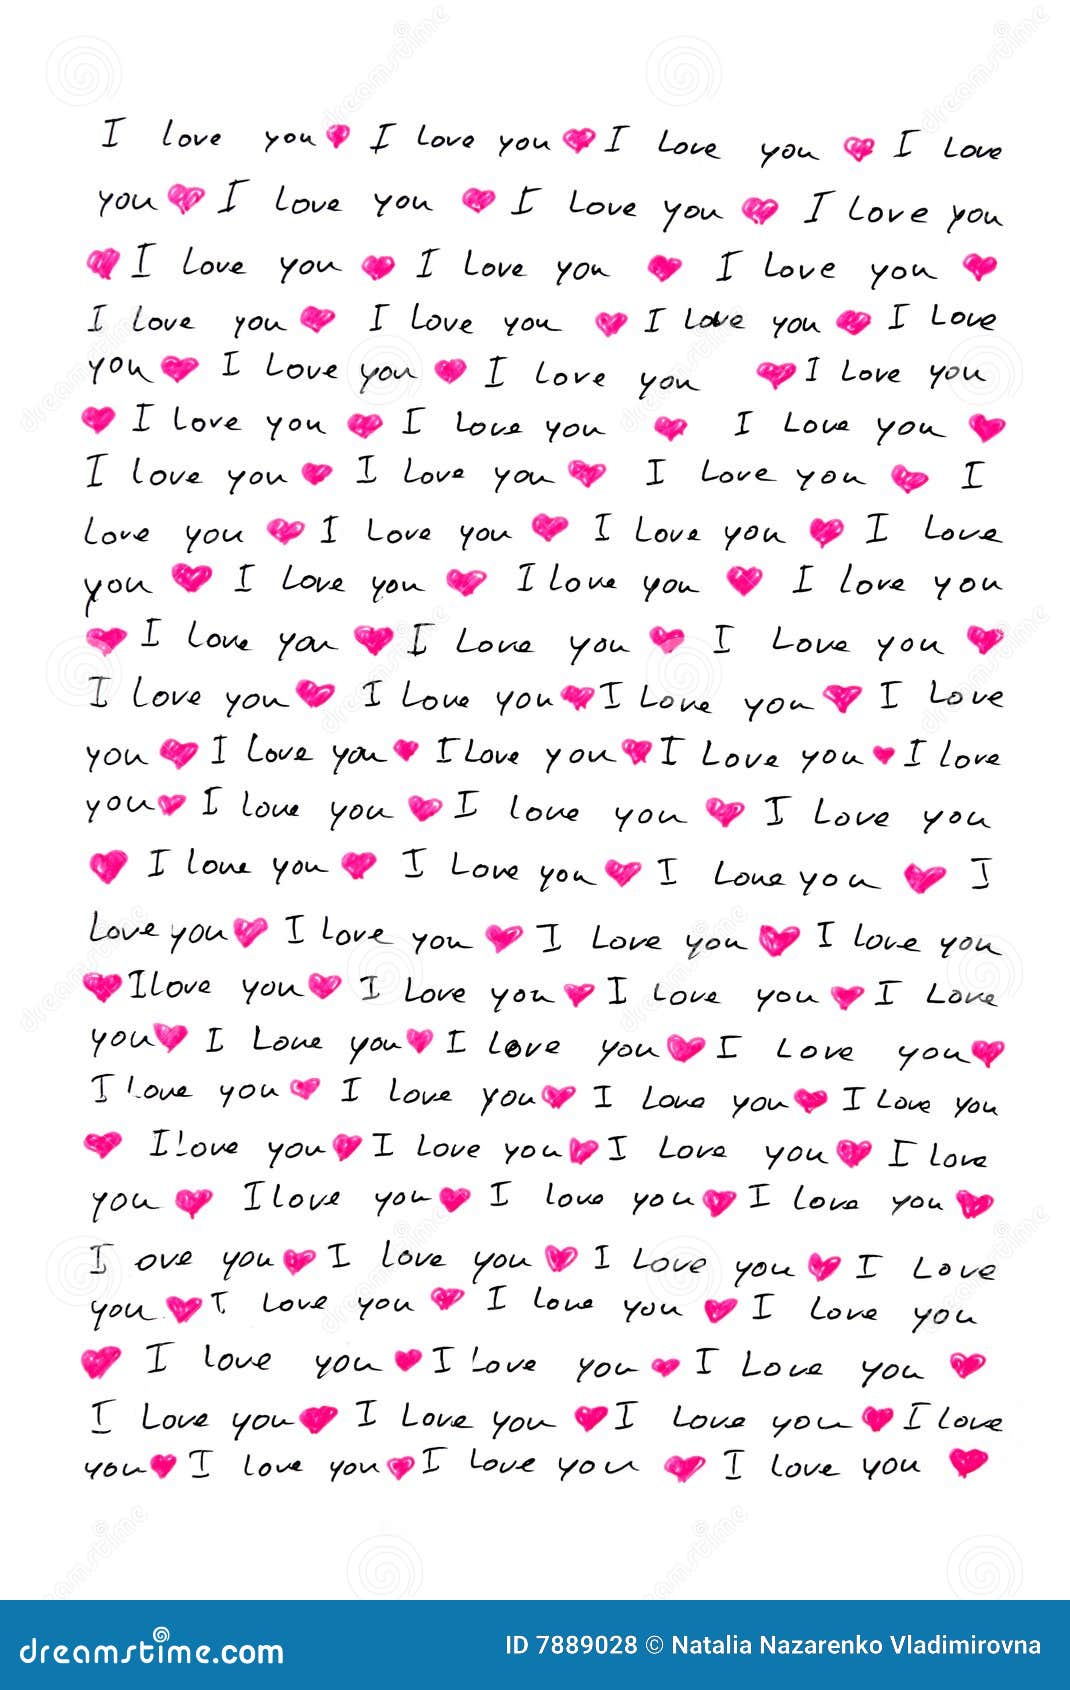 I love you ♥ I love you ♥ I love you ♥ I love
you ♥ I love you ♥ I love you ♥ I love you
♥ I love you ♥ I love you ♥ I love you ♥
I love you ♥ I love you ♥ I love you ♥ I love
you ♥ I love you ♥ I love you ♥ I love you
♥ I love you ♥ I love you ♥ I love you ♥
I love you ♥ I love you ♥ I love you ♥ I
love you ♥ I love you ♥ I love you ♥ I love
you ♥ I love you ♥ I love you ♥ I love you
♥ I love you ♥ I love you ♥ I love you ♥
I love you ♥ I love you ♥ I love you ♥ I love
you ♥ I love you ♥ I love you ♥ I love you ♥ I love
you ♥ I love you ♥ I love you ♥ I love you
♥ I love you ♥ I love you ♥ I love you ♥ I
love you ♥ I love you ♥ I love you ♥ I love you
♥ I love you ♥ I love you ♥ I love you ♥ I love
you ♥ I love you ♥ I love you ♥ I love you ♥
I love you ♥ I love you ♥ I love you ♥ I love you
♥ I love you ♥ I love you ♥ I love you ♥ I love
you ♥ I love you ♥ I love you ♥ I love you ♥
I ove you ♥ I love you ♥ I love you ♥ I love
you ♥ I love you ♥ I love you ♥ I love you
♥ I love you ♥ I love you ♥ I love you ♥
I love you ♥ I love you ♥ I love you ♥ I love
you ♥ I love you ♥ I love you ♥ I love you ♥
dreamstime.com
ID 7889028 © Natalia Nazarenko Vladimirovna